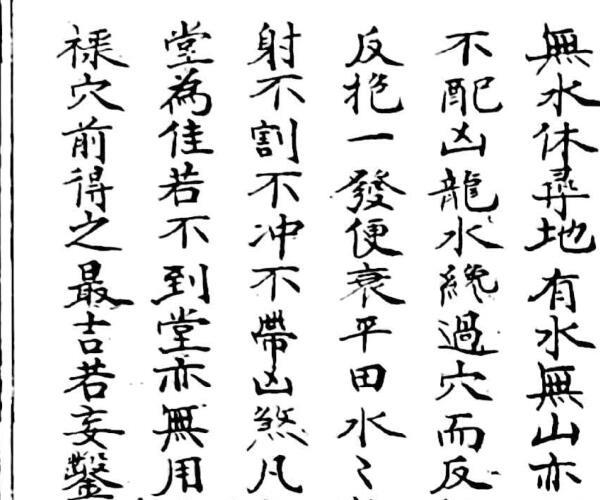 無水休尋地有水無山亦
不配凶龍水纔過穴而反
反抱一發便衰平田水〻
射不割不冲不帶凶煞凡
堂為佳若不到堂亦無用
禄穴前得之最吉若妄鑿